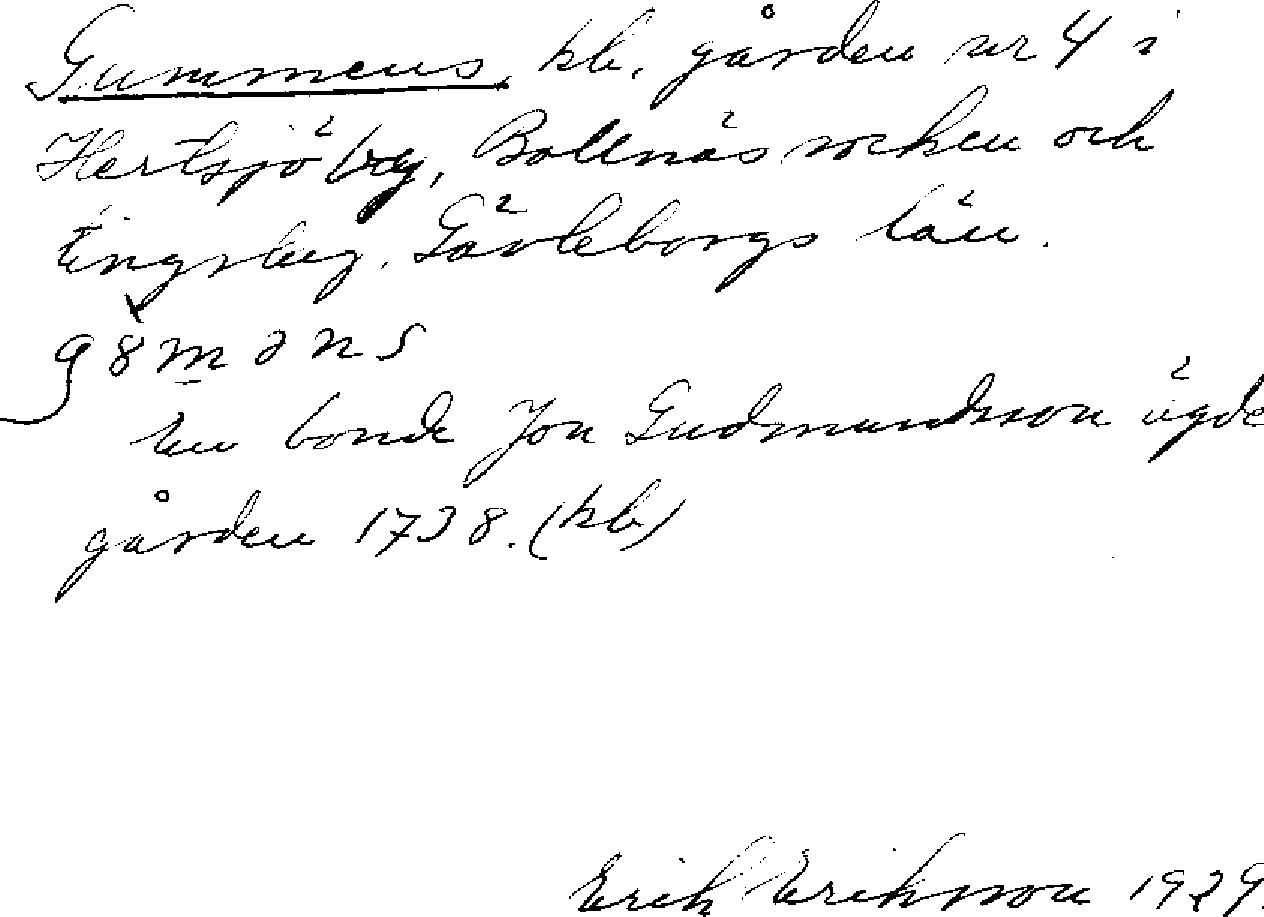 Gummens, kb. gården nr 4 i
Hertsjö by, Bollnäs socken och
tingslag. Gävleborgs län.
g8̀m̲əns
En bonde Jon Gudmundsson ägde
gården 1738. (kb)
Erik Eriksson 1929.